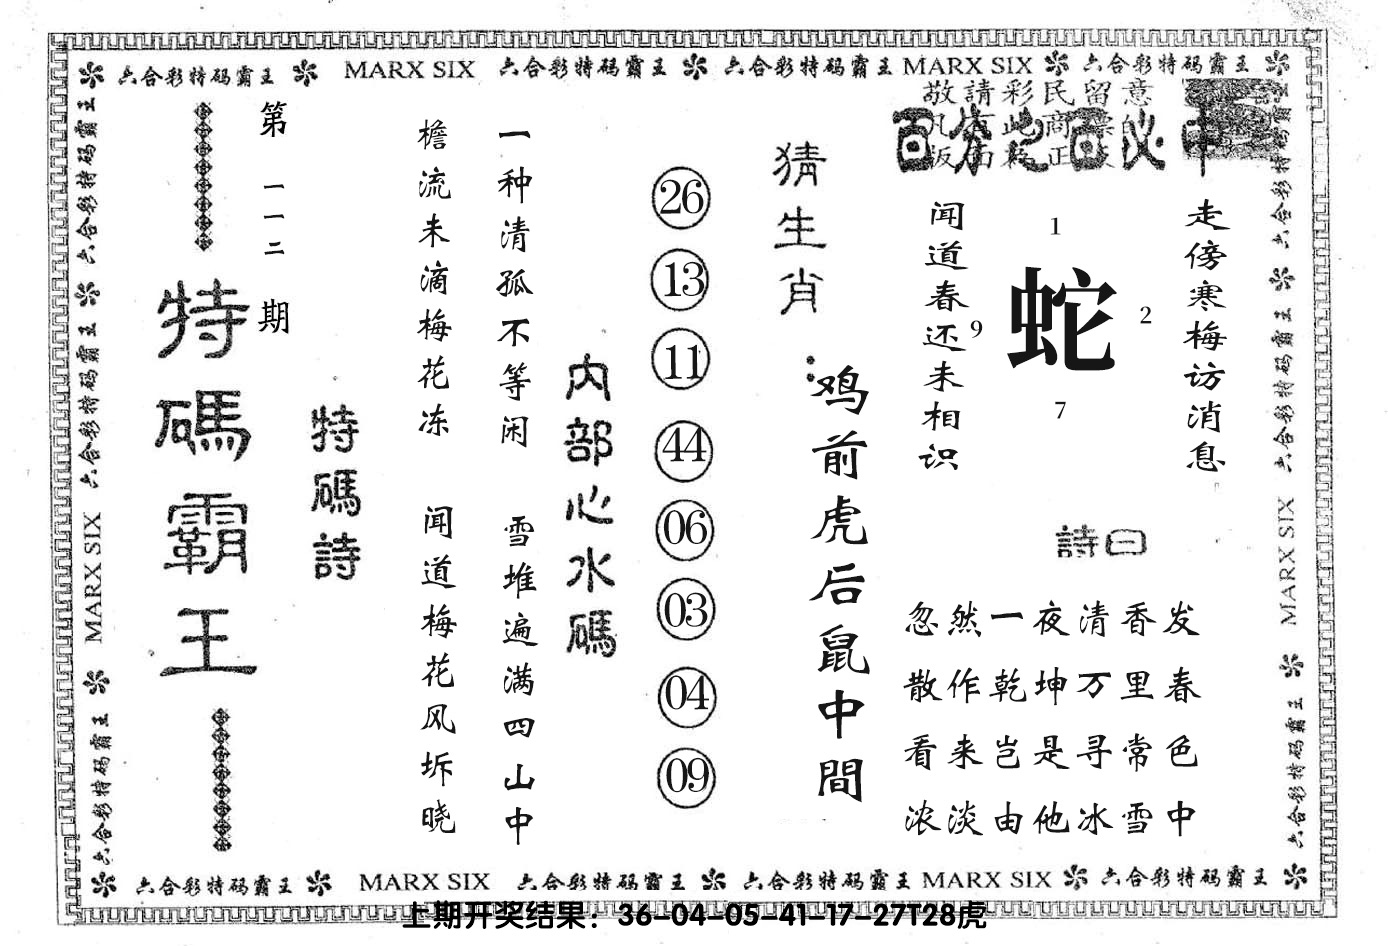 六合彩特码霸王 MARX SIX 六合彩特码霸王 六合彩特码霸王 MARX SIX 六合彩特码霸王
敬請彩民留意
百分之百必中
走傍寒梅访消息
闻道春还未相识
1
9
蛇
2
7
詩曰
忽然一夜清香发
散作乾坤万里春
看来岂是寻常色
浓淡由他冰雪中
猜生肖：
鸡前虎后鼠中間
26
13
11
44
06
03
04
09
内部心水碼
一种清孤不等闲
雪堆遍满四山中
檐流未滴梅花冻
闻道梅花风坼晓
特碼詩
第一一二期
特碼霸王
六合彩特码霸王 六合彩特码霸王 MARX SIX 六合彩特码霸王
六合彩特码霸王 六合彩特码霸王 MARX SIX 六合彩特码霸王
六合彩特码霸王 MARX SIX 六合彩特码霸王 六合彩特码霸王 MARX SIX 六合彩特码霸王
上期开奖结果：36-04-05-41-17-27T28虎